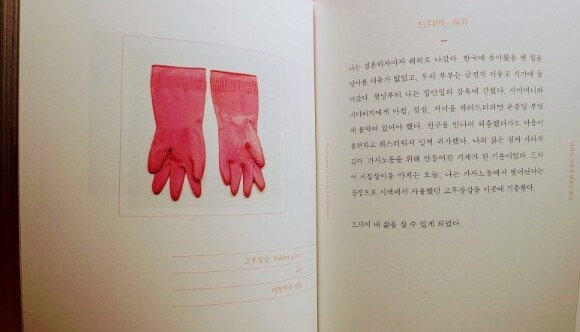 고무장갑 Rubber gloves
드디어, 자유
나는 결혼하자마자 해외로 나갔다. 한국에 돌아왔을 땐 집을
얻어볼 여유가 없었고, 우리 부부는 금전적 이유로 시가에 들
어갔다. 첫날부터 나는 집안일의 감옥에 갇혔다. 시어머니와
시아버지에게 아침, 점심, 저녁을 차려드리려면 온종일 부엌
에 붙박여 있어야 했다. 친구를 만나러 외출했다가도 마음이
불편하고 죄스러워서 일찍 귀가했다. 나의 삶은 점차 사라져
갔다. 가사노동을 위해 만들어진 기계가 된 기분이었다. 드디
어 시집살이를 마치는 오늘, 나는 가사노동에서 벗어난다는
상징으로 시댁에서 사용했던 고무장갑을 이곳에 기증한다.
드디어 내 삶을 살 수 있게 되었다.